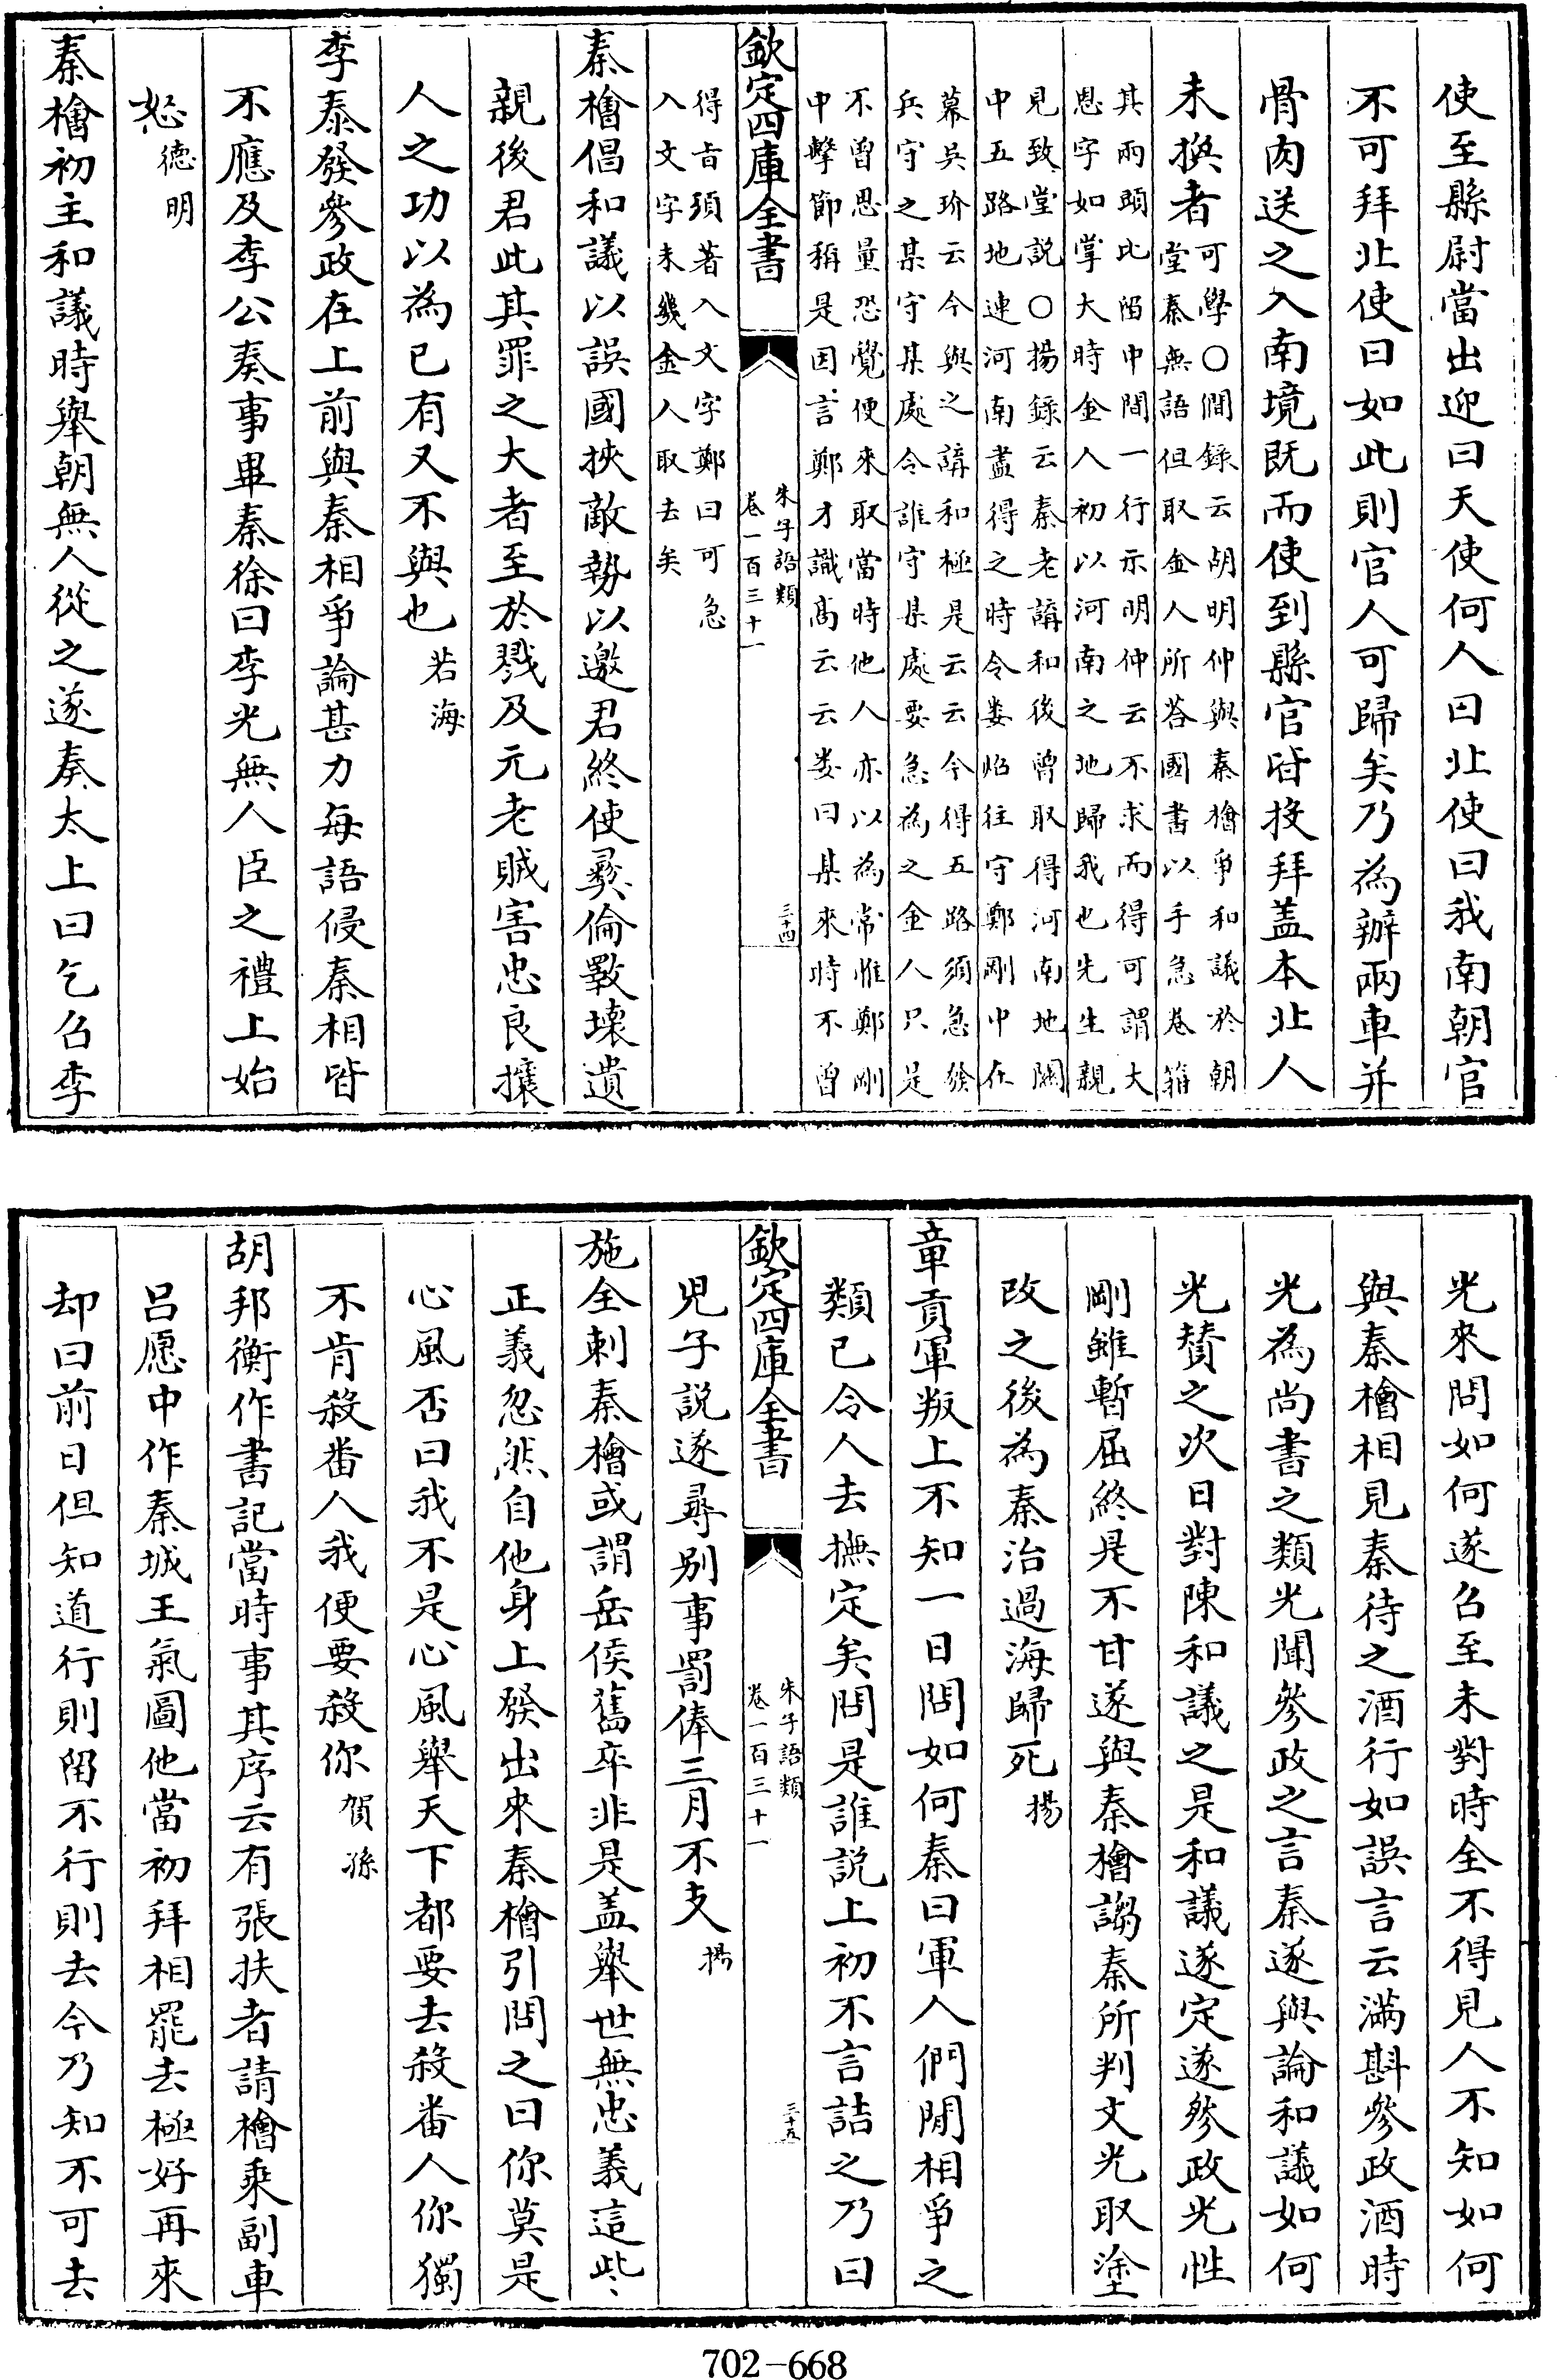 使至縣尉當出迎曰天使何人曰北使曰我南朝官
不可拜北使曰如此則官人可歸矣乃為辦兩車并
骨肉送之入南境既而使到縣官皆投拜盖本北人
未換者可學○僴録云胡明仲與秦檜爭和議於朝
堂秦無語但取金人所荅國書以手急卷箱
其兩頭此陷中間一行示明仲云不求而得可謂大
恩字如掌大時金人初以河南之地歸我也先生親
見致堂説○揚錄云秦老講和後曾取得河南地關
中五路地連河南盡得之時令婁炤往守鄭剛中在
幕吳玠云今與之講和極是云云今得五路須急發
兵守之某守某處令誰守某處要急為之金人只是
不曾思量恐覺便來取當時他人亦以為常惟鄭剛
中擊節稱是因言鄭才識高云云婁曰某來時不曾
欽定四庫全書
朱子語類
卷一百三十一
三十四
得㫖須著入文字鄭曰可急
入文字未幾金人取去矣
秦檜倡和議以誤國挾敵勢以邀君終使彛倫斁壞遺
親後君此其罪之大者至於戮及元老賊害忠良攘
人之功以為已有又不與也若海
李泰發參政在上前與秦相爭論甚力每語侵秦相皆
不應及李公奏事畢秦徐曰李光無人臣之禮上始
怒德明
秦檜初主和議時舉朝無人從之遂奏太上曰乞召李
光來問如何遂召至未對時全不得見人不知如何
與秦檜相見秦待之酒行如誤言云滿斟參政酒時
光為尚書之類光聞參政之言秦遂與論和議如何
光賛之次日對陳和議之是和議遂定遂叅政光性
剛雖暫屈終是不甘遂與秦檜謅秦所判文光取塗
改之後為秦治過海歸死揚
章貢軍叛上不知一日問如何秦曰軍人們閒相爭之
類已令人去撫定矣問是誰説上初不言詰之乃曰
欽定四庫全書
朱子語類
卷一百三十一
三十五
兒子説遂尋别事罰俸三月不支揚
施全刺秦檜或謂岳侯舊卒非是盖舉世無忠義這些
正義忽然自他身上發出來秦檜引問之曰你莫是
心風否曰我不是心風舉天下都要去殺番人你獨
不肯殺番人我便要殺你賀孫
胡邦衡作書記當時事其序云有張扶者請檜乘副車
呂愿中作秦城王氣圖他當初拜相罷去極好再來
却曰前日但知道行則留不行則去今乃知不可去
702-668